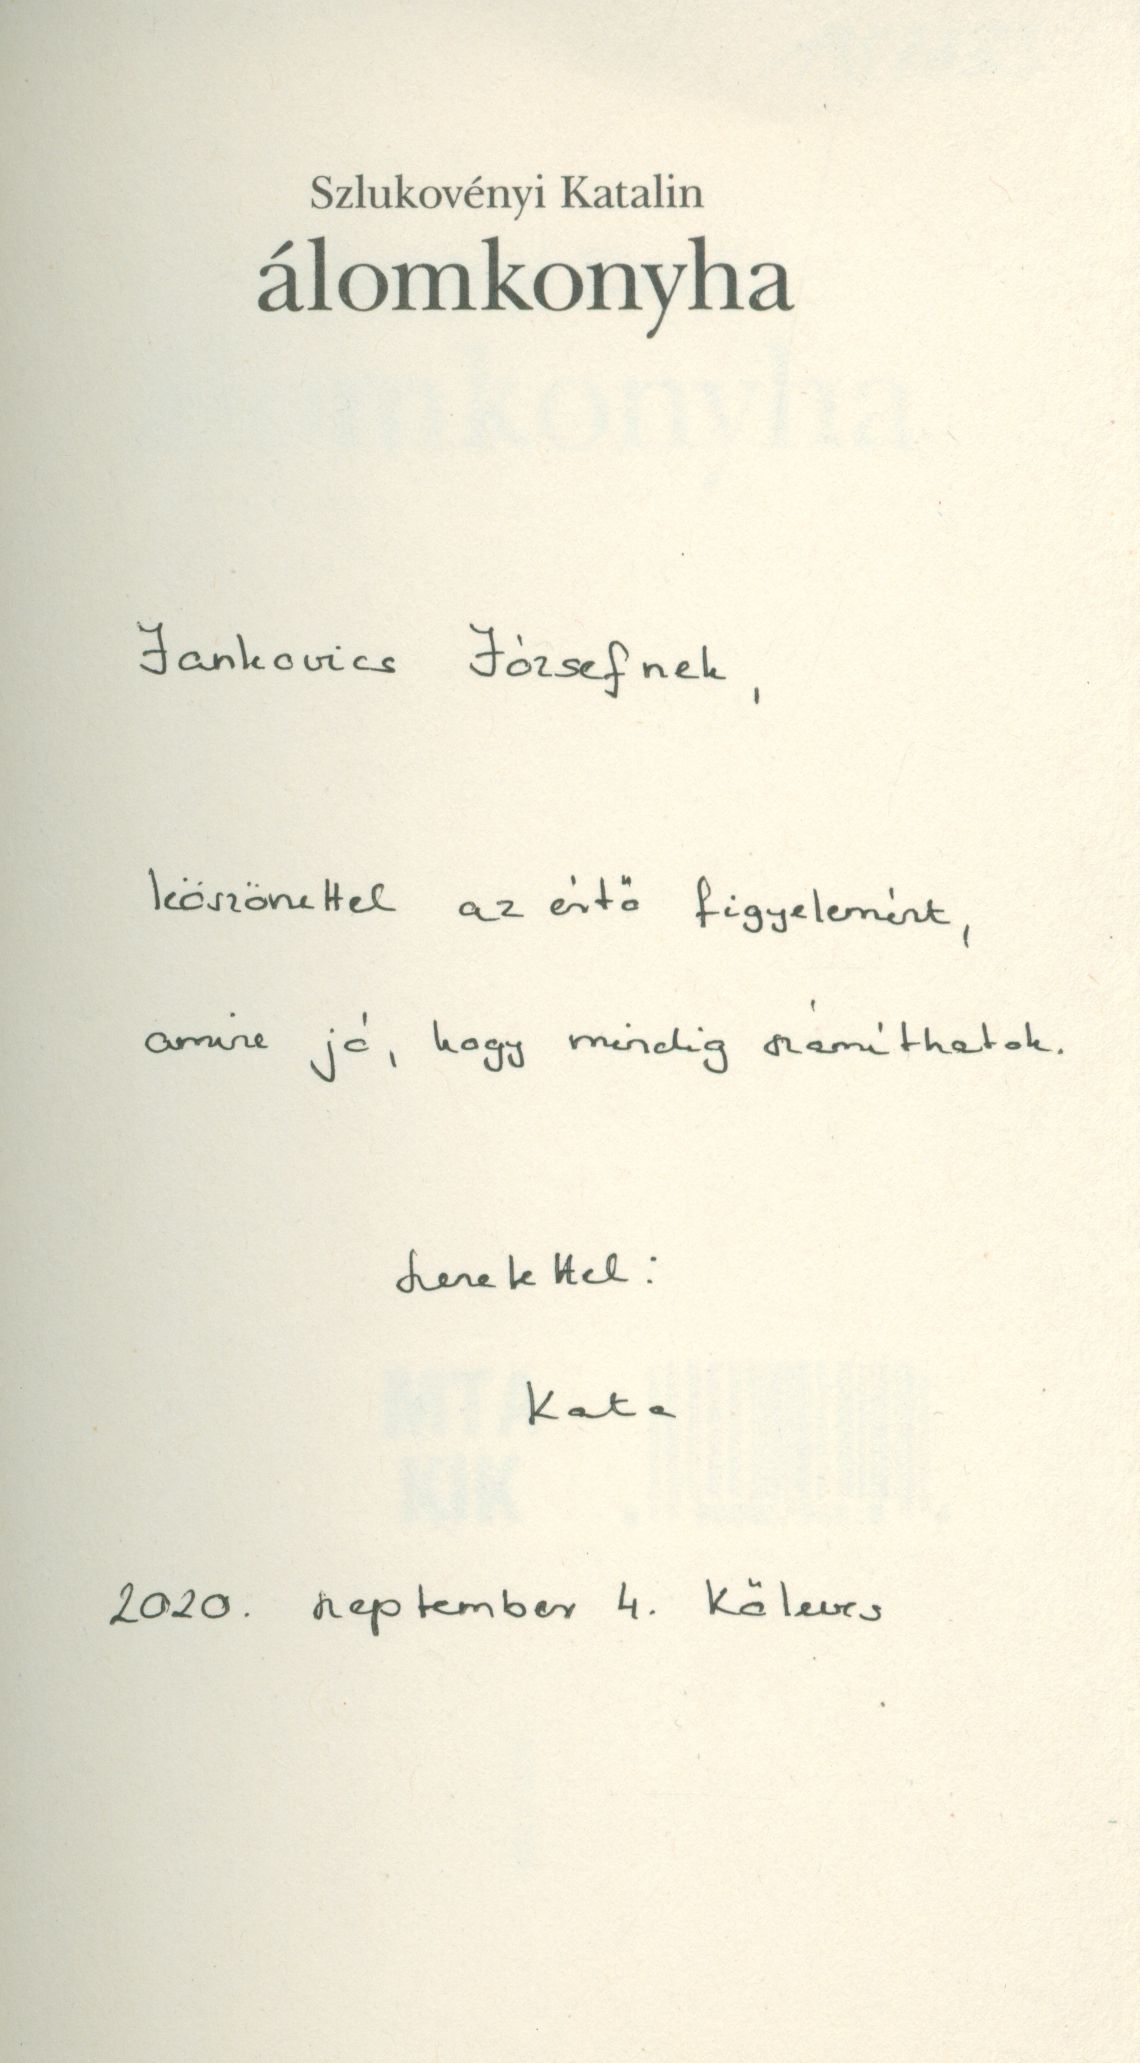 Szlukovényi Katalin
álomkonyha
Jankovics Józsefnek,
köszönettel az értő figyelemért,
amire jó, hogy mindig számíthatok.
Szeretettel:
Kata
2020. szeptember 4. Kőleves
MTA
KIK